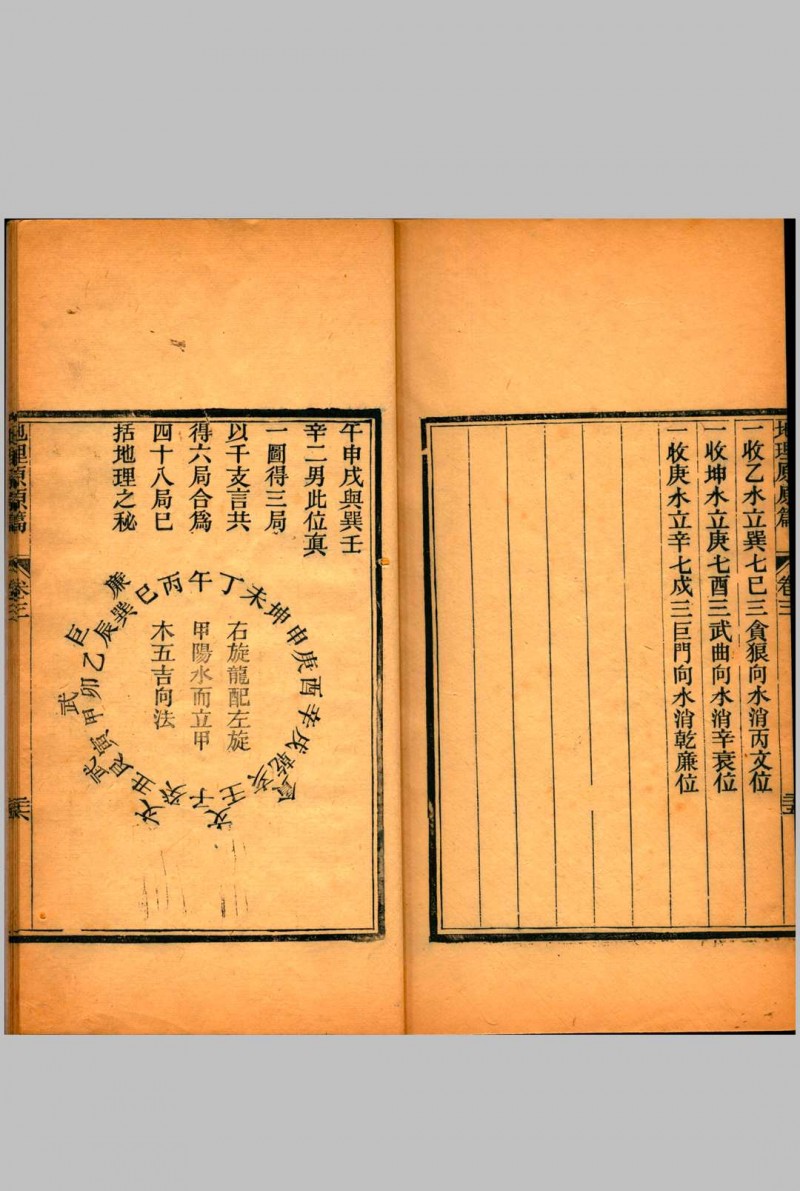 地理原眞篇
卷三
三五
一收乙水立巽七巳三貪狼向水消丙文位
一收坤水立庚七酉三武曲向水消辛衰位
一收庚水立辛七戌三巨門向水消乾廉位
午申戌與巽壬
辛二男此位真
一圖得三局
以干支言共
得六局合爲
四十八局已
括地理之秘
右旋龍配左旋
甲陽水而立甲
木五吉向法
午丁未坤申庚酉辛戌乾亥壬子癸丑艮寅甲卯乙辰巽巳丙
廉
巨
武
武
文
文
廉
卷三
三六